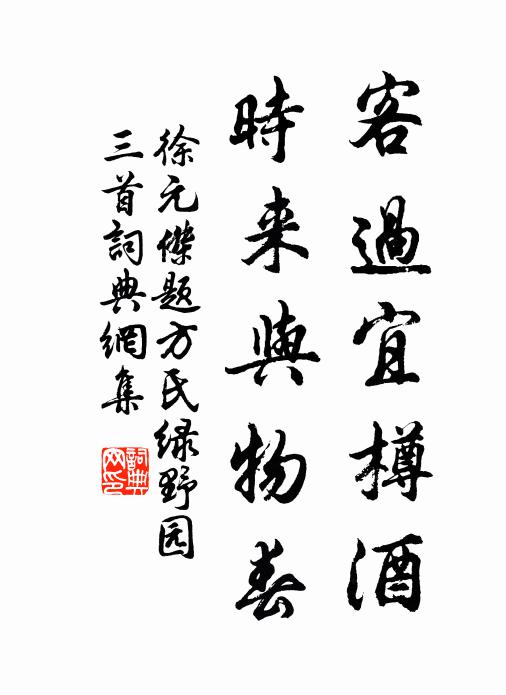 客過宜樽酒
時来與物春
徐元傑题方氏绿野园
三首詞典網集
詞典网印